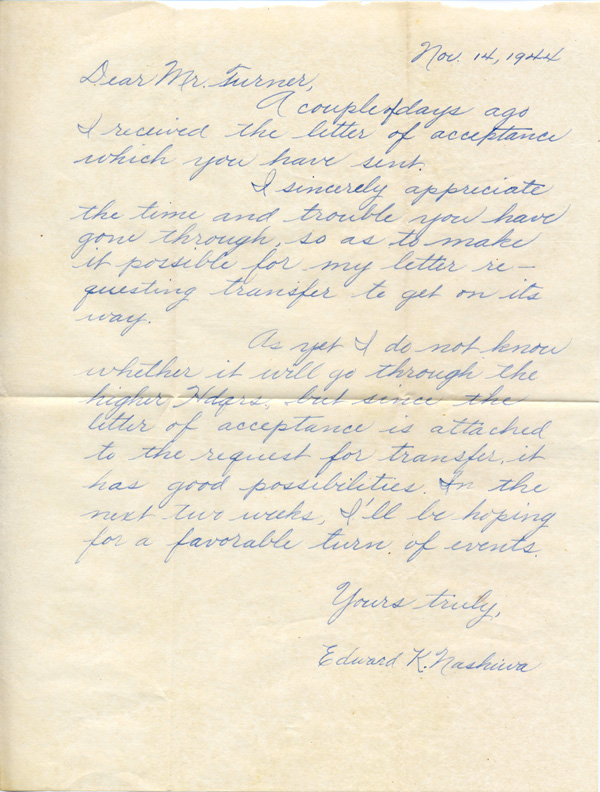 Nov. 14, 1944
Dear Mr. Turner,
A couple of days ago
I received the letter of acceptance
which you have sent.
I sincerely appreciate
the time and trouble you have
gone through, so as to make
it possible for my letter re-
questing transfer to get on its
way.
As yet I do not know
whether it will go through the
higher Hdqrs. but since the
letter of acceptance is attached
to the request for transfer, it
has good possibilities. In the
next two weeks, I'll be hoping
for a favorable turn of events.
Yours truly,
Edward K. Nashiwa